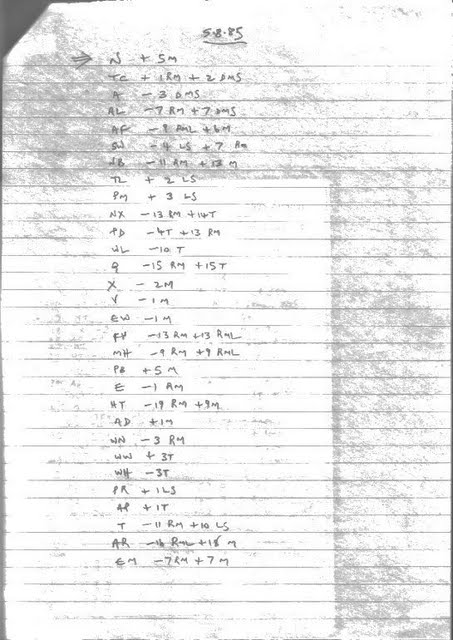 5.8.85
⇒ N + 5M
TC + 1RM + 2 DMS
A - 3 DMS
AL - 7 RM + 7 DMS
AF - 9 RML + 6M
SW - 4 LS + 7 RM
- 11 RM + 13 M
TL + 2 LS
PM + 3 LS
NX - 13 RM + 14T
PD - 4T + 13 RM
WL - 10 T
Q - 15 RM + 15T
X - 2M
V - 1M
EW - 1M
FH - 13 RM + 13 RML
MH - 9 RM + 9 RML
PB + 5 M
E - 1 RM
HT - 19 RM + 9M
AD + 1M
WN - 3 RM
WW + 3T
WH - 3T
PR + 1LS
AP + 1T
T - 11 RM + 10 LS
AR RML + 18 M
EM - 7RM + 7M